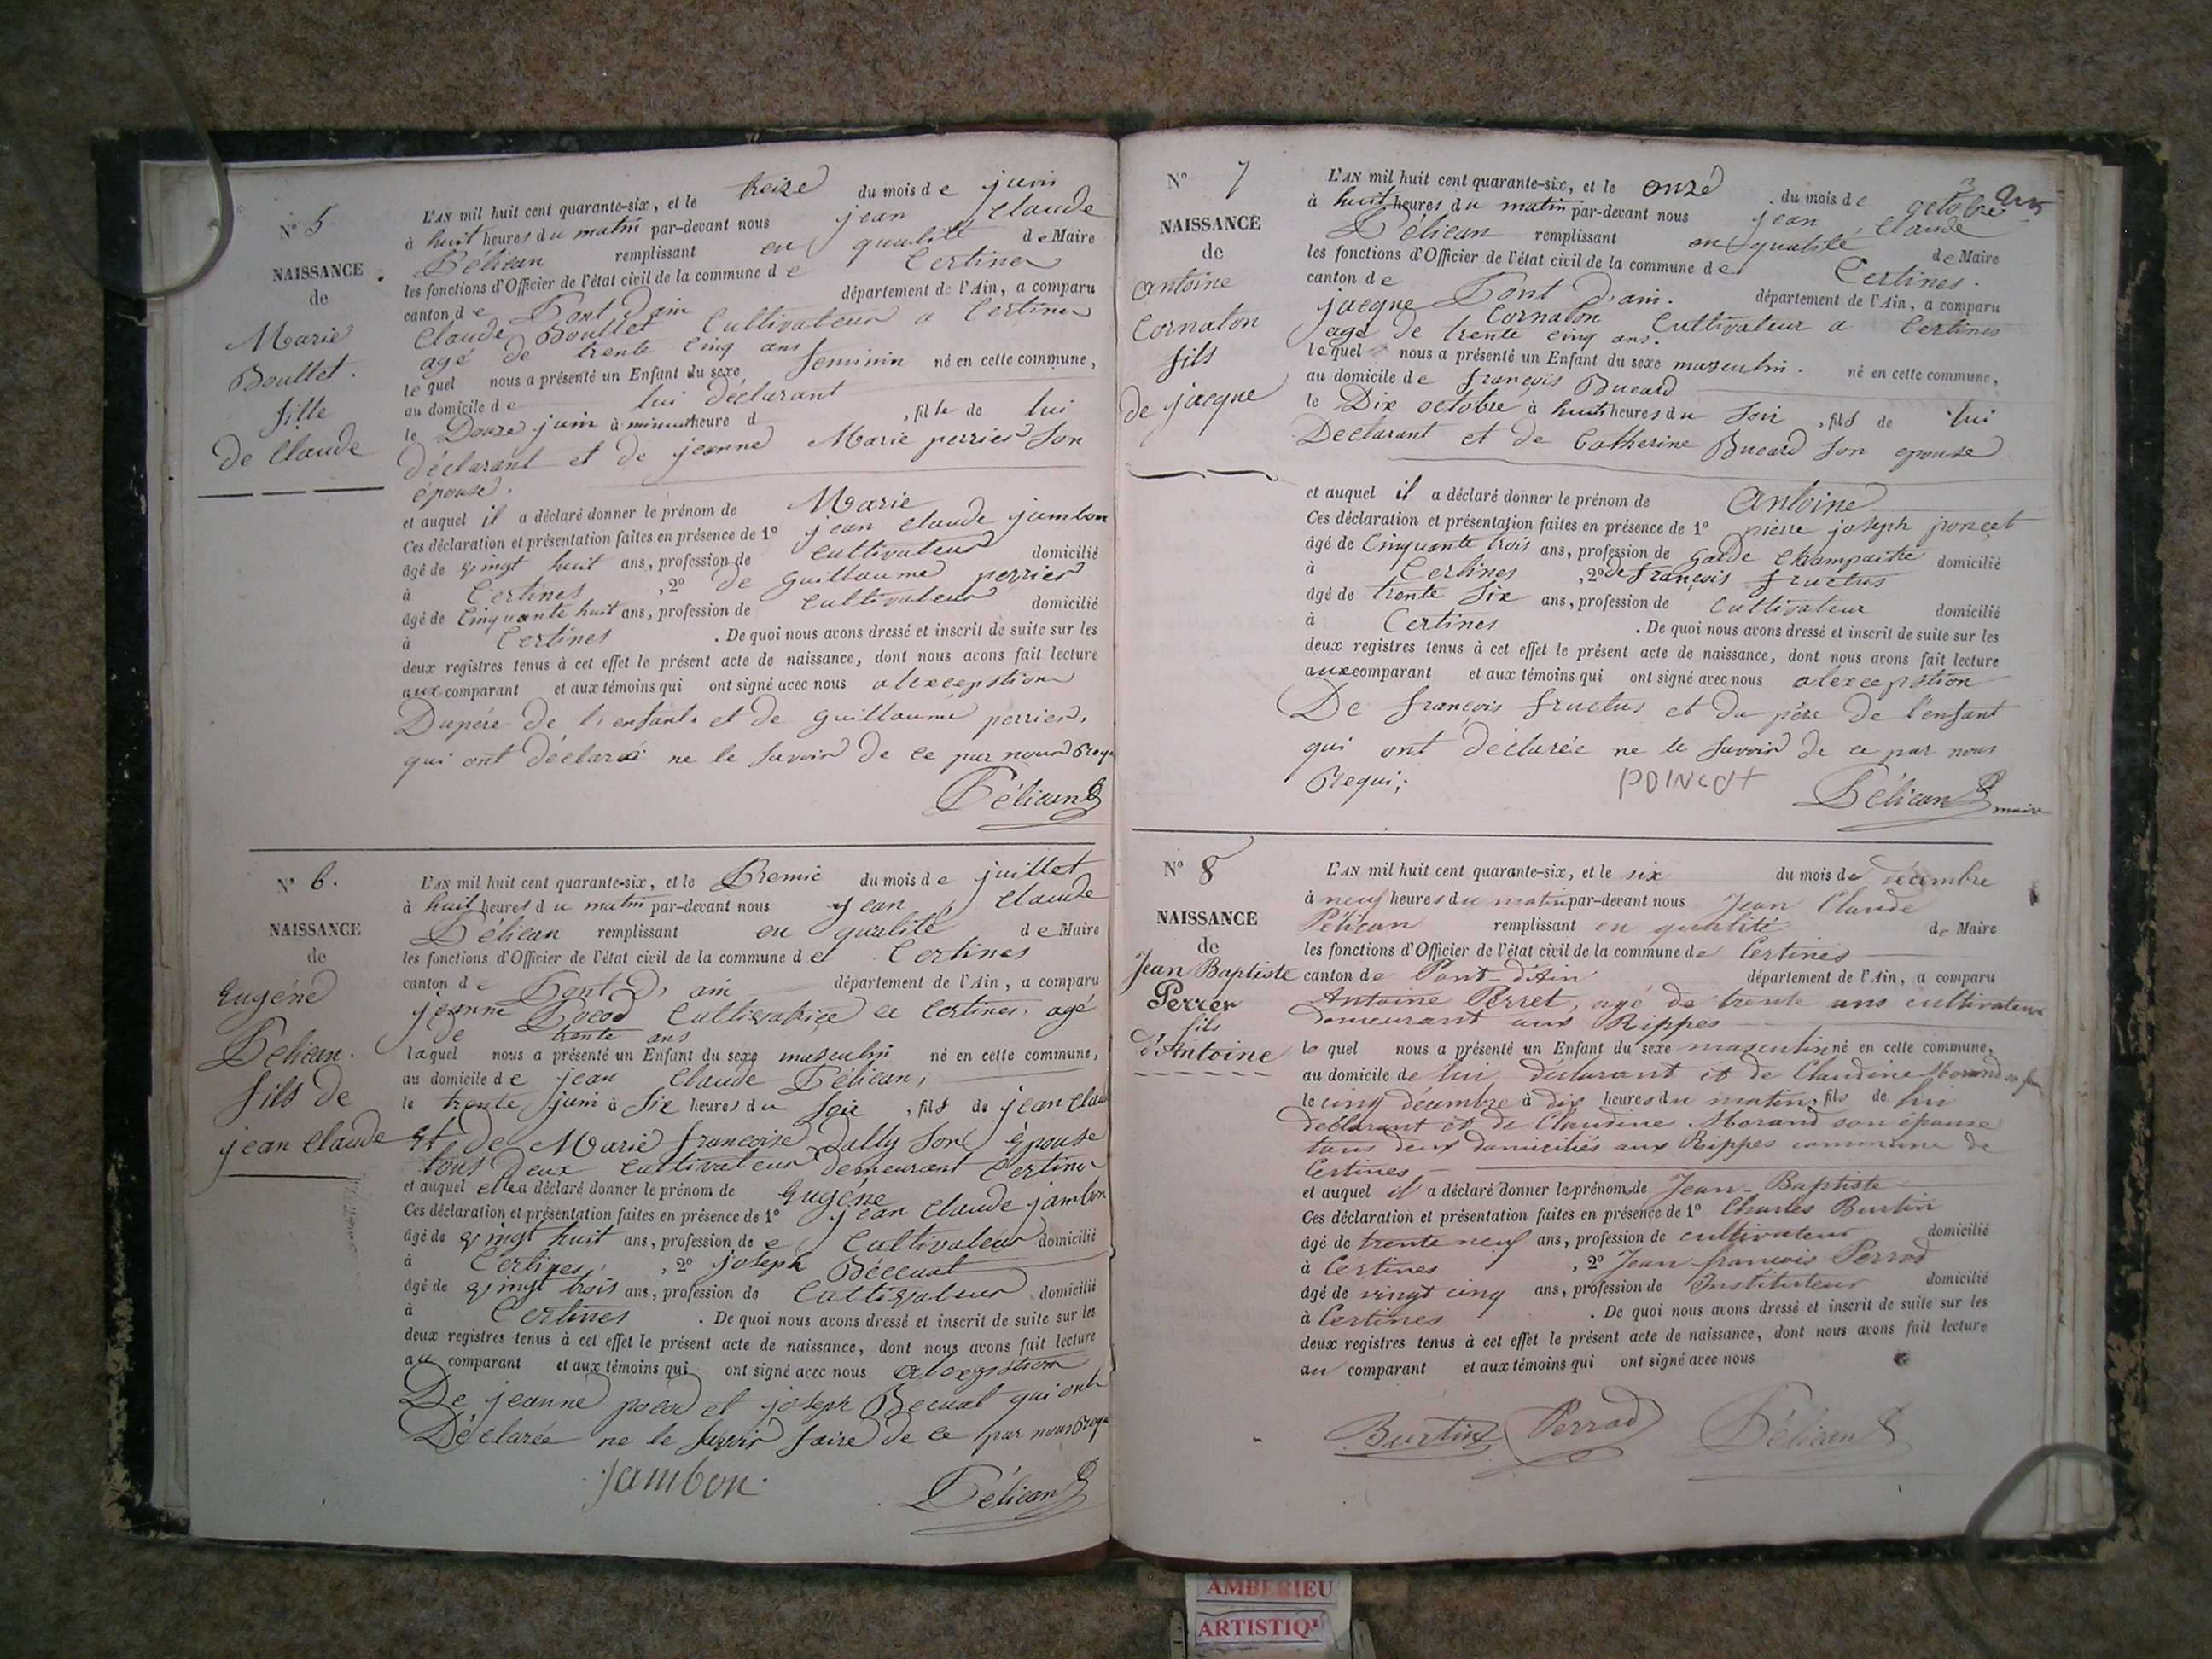 N° 5
NAISSANCE
de
Marie
Boullet.
fille
de Claude
L'AN mil huit cent quarante-six, et le treize du mois de juin
à huit heures du matin par-devant nous jean Claude
Pélican remplissant en qualité de Maire
les fonctions d'Officier de l'état civil de la commune de Certines
canton de Pont D'ain département de l'Ain, a comparu
Claude Boullet Cultivateur a Certines
agé de trente Cinq ans
lequel nous a présenté un Enfant du sexe feminin né en cette commune,
au domicile de lui déclarant
le Douze juin à minuit heure d , fille de lui
déclarant et de jeanne Marie perrier Son
épouse.
et auquel il a déclaré donner le prénom de Marie
Ces déclaration et présentation faites en présence de 1° jean Claude jambon
âgé de vingt huit ans, profession de Cultivateur domicilié
à Certines , 2° de Guillaume perrier
âgé de Cinquante huit ans, profession de Cultivateur domicilié
à Certines . De quoi nous avons dressé et inscrit de suite sur les
deux registres tenus à cet effet le présent acte de naissance, dont nous avons fait lecture
aux comparant et aux témoins qui ont signé avec nous alexcepstion
Dupére de l'enfant et de guillaume perrier,
qui ont déclaré ne le Savoir de ce par nous Requi
Pélican
N° 6.
NAISSANCE
de
Eugéne
Pelican.
fils de
jean Claude
L'AN mil huit cent quarante-six, et le Premie du mois de juillet
à huit heures du matin par-devant nous jean Claude
Pélican remplissant en qualité de Maire
les fonctions d'Officier de l'état civil de la commune de Certines
canton de Pont D'ain département de l'Ain, a comparu
jeanne Pocod Cultivatrice a Certines, agé
de trente ans
laquel nous a présenté un Enfant du sexe masculin né en cette commune,
au domicile de jean Claude Pélican,
le trente juin à Six heures du Soir , fils de jean Claude
Et de Marie francoise Dally Son épouse
tous Deux Cultivateur Demeurant Certines
et auquel elle a déclaré donner le prénom de Eugéne
Ces déclaration et présentation faites en présence de 1° jean Claude jambon
âgé de vingt huit ans, profession de Cultivateur domicilié
à Certines , 2° joseph Béccuat
âgé de vingt trois ans, profession de Cultivateur domicilié
à Certines . De quoi nous avons dressé et inscrit de suite sur les
deux registres tenus à cet effet le présent acte de naissance, dont nous avons fait lecture
au comparant et aux témoins qui ont signé avec nous
De jeanne pocod et joseph Becuat qui ont
Déclarée ne le Savoir faire de ce par nous Requi
Jambon. Pélican
N° 7
NAISSANCE
de
Antoine
Cornaton
fils
de jacque
L'AN mil huit cent quarante-six, et le onze du mois de octobre
à huit heures du matin par-devant nous jean Claude
Pélican remplissant en qualité de Maire
les fonctions d'Officier de l'état civil de la commune de Certines.
canton de Pont D'ain. département de l'Ain, a comparu
jacque Cornaton Cultivateur a Certines
agé de trente cinq ans.
lequel nous a présenté un Enfant du sexe masculin. né en cette commune,
au domicile de françois Bucard
le Dix octobre à huit heures du Soir , fils de lui
Déclarant et de Catherine Bucard Son epouse
et auquel il a déclaré donner le prénom de Antoine
Ces déclaration et présentation faites en présence de 1° pierre joseph poncet
âgé de Cinquante trois ans, profession de Garde Champaitre domicilié
à Certines , 2° de françois fructus
âgé de trente Six ans, profession de Cultivateur domicilié
à Certines . De quoi nous avons dressé et inscrit de suite sur les
deux registres tenus à cet effet le présent acte de naissance, dont nous avons fait lecture
aux comparant et aux témoins qui ont signé avec nous alexcepstion
De françois fructus et du père De l'enfant
qui ont déclarée ne le Savoir de ce par nous
Requi;
POINCOT Pélican maire
N° 8
NAISSANCE
de
Jean Baptiste
Perrer
fils
d'Antoine
L'AN mil huit cent quarante-six, et le six du mois de décembre
à neuf heures du matin par-devant nous Jean Claude
Pélican remplissant en qualité de Maire
les fonctions d'Officier de l'état civil de la commune de Certines
canton de Pont d'Ain département de l'Ain, a comparu
Antoine Perret, agé de trente ans cultivateur
demeurant aux Rippes
le quel nous a présenté un Enfant du sexe masculin né en cette commune,
au domicile de lui déclarant et de Claudine Morand
le cinq décembre à dix heures du matin, fils de lui
déclarant et de Claudine Morand son épouse
tous deux domiciliés aux Rippes commune de
Certines
et auquel il a déclaré donner le prénom de Jean-Baptiste
Ces déclaration et présentation faites en présence de 1° Charles Burtin
âgé de trente neuf ans, profession de cultivateur domicilié
à Certines , 2° Jean françois Perrod
âgé de vingt cinq ans, profession de Instituteur domicilié
à Certines . De quoi nous avons dressé et inscrit de suite sur les
deux registres tenus à cet effet le présent acte de naissance, dont nous avons fait lecture
au comparant et aux témoins qui ont signé avec nous
Burtin Perrod Pélican
AMBERIEU
ARTISTIQ